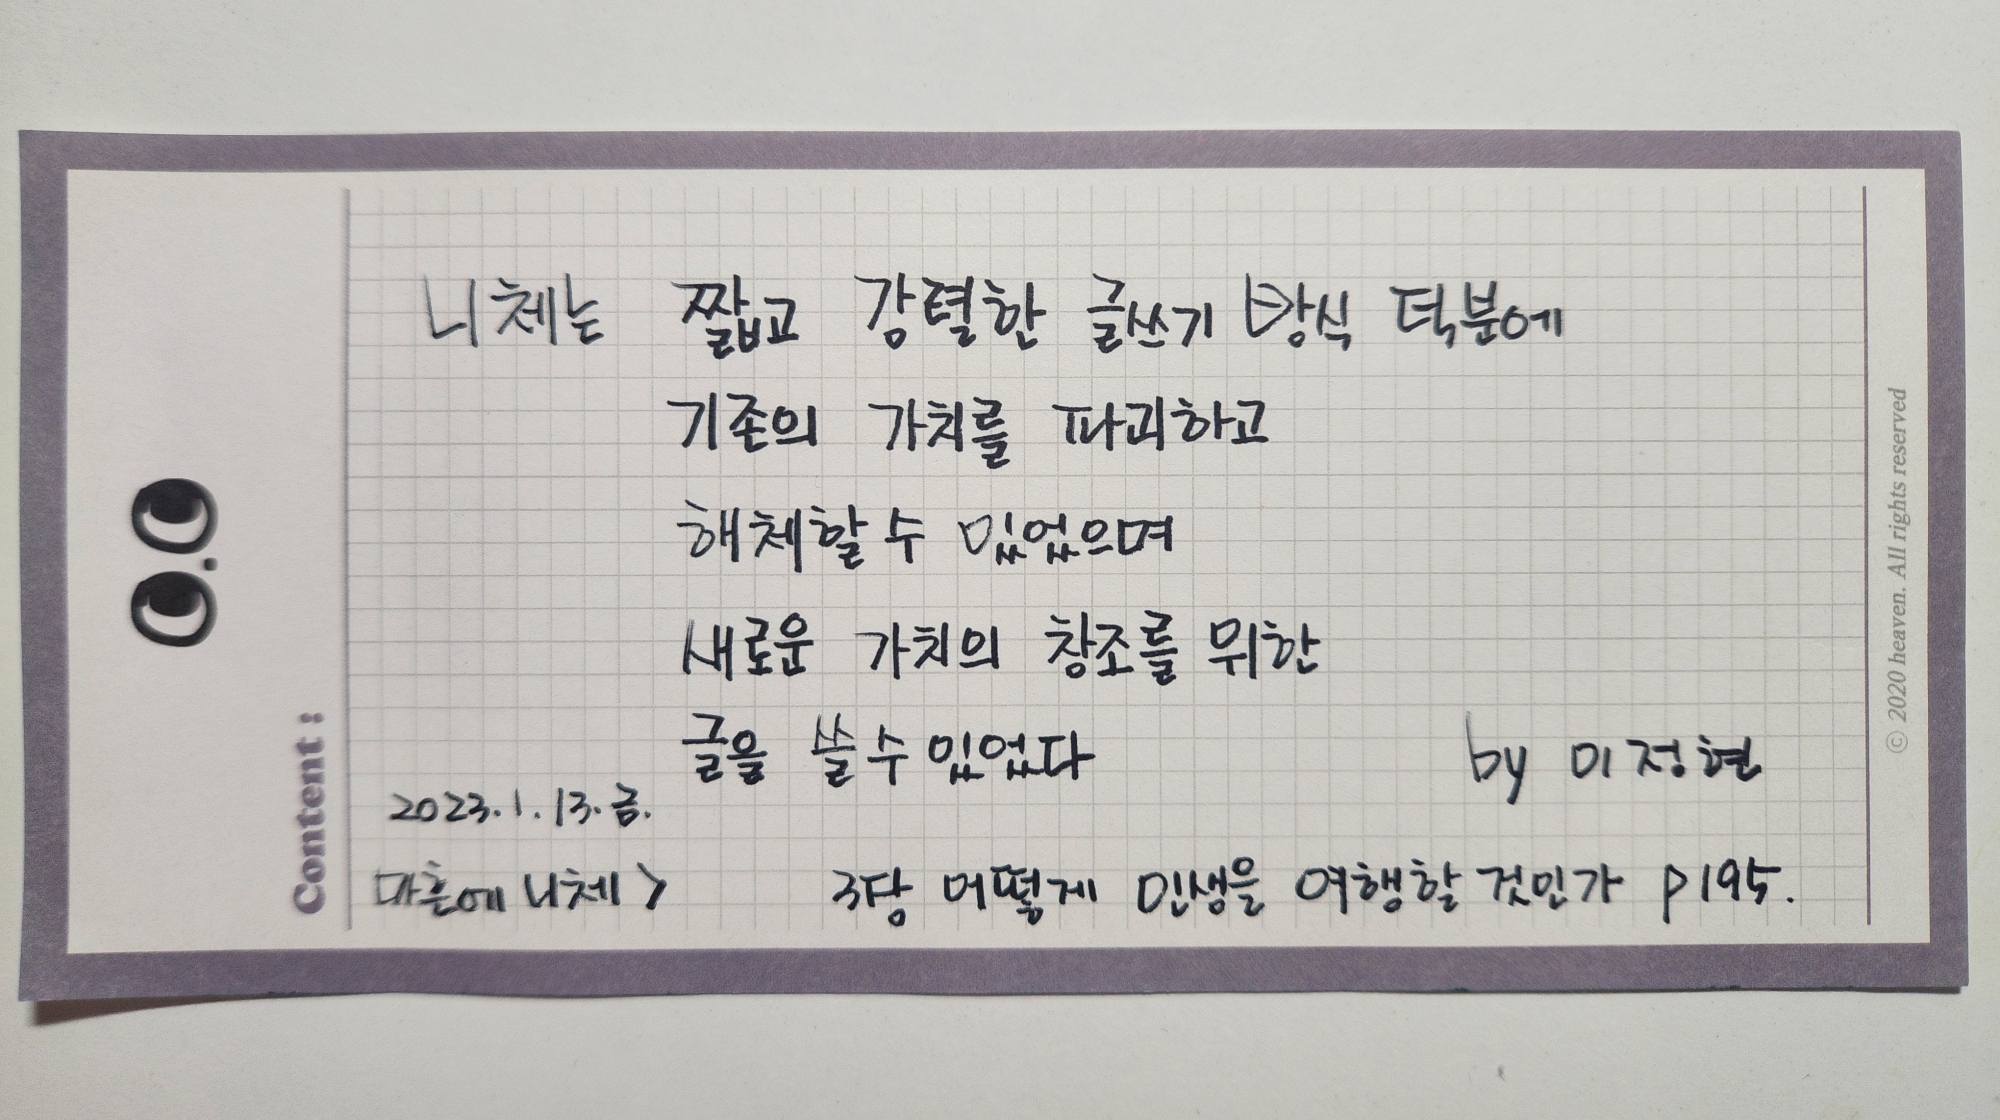 니체는 짧고 강렬한 글쓰기 방식 덕분에
기존의 가치를 파괴하고
해체할 수 있었으며
새로운 가치의 창조를 위한
글을 쓸 수 있었다
by 이정현
2023. 1. 13. 금.
마흔에 니체 > 3장 어떻게 인생을 여행할 것인가 p195.
Content :
O.O
© 2020 heaven. All rights reserved